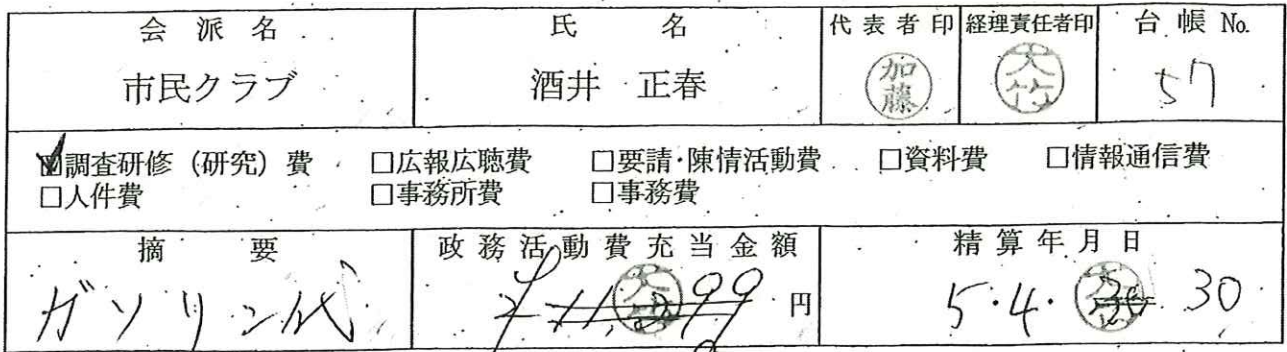 会派名 氏名 代表者印 経理責任者印 台帳No.
市民クラブ 酒井 正春 加藤 大竹 57
☑調査研修（研究）費 □広報広聴費 □要請・陳情活動費 □資料費 □情報通信費
□人件費 □事務所費 □事務費
摘要 政務活動費充当金額 精算年月日
ガソリン代 円 5・4・30